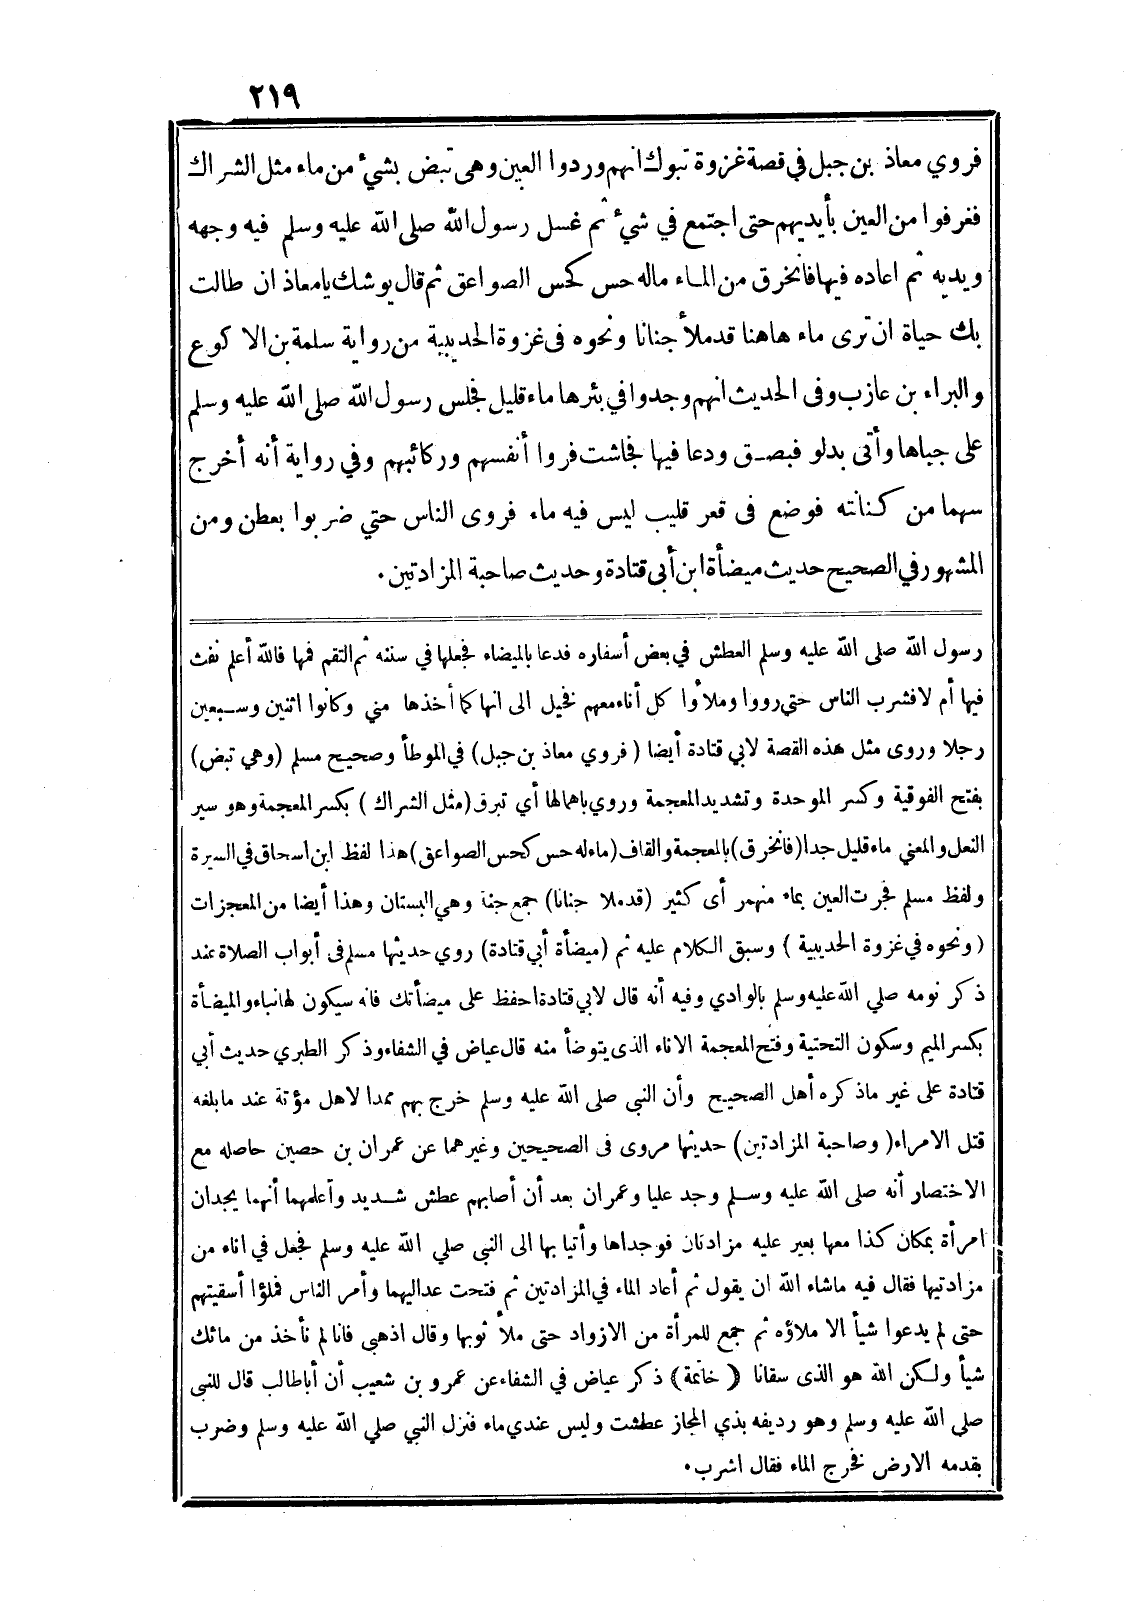 ٢١٩
فروي معاذ بن جبل في قصة غزوة تبوك انهم وردوا العين وهى تبض بشيٴ من ماء مثل الشراك
فغرفوا من العين بأيديهم حتى اجتمع في شيٴ ثم غسل رسول الله صلى الله عليه وسلم فيه وجهه
ويديه ثم اعاده فيها فانخرق من الماء ماله حس كحس الصواعق ثم قال يوشك يامعاذ ان طالت
بك حياة ان ترى ماء هاهنا قد ملأ جنانا ونحوه فى غزوة الحديبية من رواية سلمة بن الاكوع
والبراء بن عازب وفى الحديث انهم وجدوا في بئرها ماء قليل فجلس رسول الله صلى الله عليه وسلم
على جباها وأتى بدلو فبصق ودعا فيها فجاشت فروا أنفسهم وركائبهم وفي رواية أنه أخرج
سهما من كنانته فوضع فى قعر قليب ليس فيه ماء فروى الناس حتي ضربوا بعطن ومن
المشهور في الصحيح حديث ميضأة ابن أبى قتادة وحديث صاحبة المزادتين.
رسول الله صلى الله عليه وسلم العطش في بعض أسفاره فدعا بالميضاء فجعلها في سننه ثم التقم فمها فالله أعلم نفث
فيها أم لا فشرب الناس حتي رووا وملأوا كل أناء معهم فخيل الى انها كما أخذها مني وكانوا اثنين وسبعين
رجلا وروى مثل هذه القصة لابي قتادة أيضا (فروي معاذ بن جبل) في الموطأ وصحيح مسلم (وهي تبض)
بفتح الفوقية وكسر الموحدة وتشديد المعجمة وروي باهمالها أي تبرق (مثل الشراك) بكسر المعجمة وهو سير
النعل والمعني ماء قليل جدا (فانخرق) بالمعجمة والقاف (ماءله حس كحس الصواعق) هذا لفظ ابن اسحاق في السيرة
ولفظ مسلم فجرت العين بماء منهمر أى كثير (قد ملا جنانا) جمع جنة وهي البستان وهذا أيضا من المعجزات
(ونحوه في غزوة الحديبية) وسبق الكلام عليه ثم (ميضأة أبي قتادة) روي حديثها مسلم فى أبواب الصلاة عند
ذكر نومه صلي الله عليه وسلم بالوادي وفيه أنه قال لابي قتادة احفظ على ميضأتك فانه سيكون لها نباء والميضأة
بكسر الميم وسكون التحتية وفتح المعجمة الاناء الذى يتوضأ منه قال عياض في الشفاء وذكر الطبري حديث أبي
قتادة على غير ماذكره أهل الصحيح وأن النبى صلى الله عليه وسلم خرج بهم ممدا لاهل مؤتة عند مابلغه
قتل الامراء (وصاحبة المزادتين) حديثها مروى فى الصحيحين وغيرهما عن عمران بن حصين حاصله مع
الاختصار أنه صلى الله عليه وسلم وجد عليا وعمران بعد أن أصابهم عطش شديد وأعلمهما أنهما يجدان
امرأة بمكان كذا معها بعير عليه مزادتان فوجداها وأتيا بها الى النبى صلي الله عليه وسلم فجعل في اناء من
مزادتيها فقال فيه ماشاء الله ان يقول ثم أعاد الماء في المزادتين ثم فتحت عداليهما وأمر الناس فملؤا أسقيتهم
حتى لم يدعوا شيأ الا ملاؤه ثم جمع للمرأة من الازواد حتى ملأ ثوبها وقال اذهبى فانا لم نأخذ من مائك
شيأ ولكن الله هو الذى سقانا (خاتمة) ذكر عياض في الشفاء عن عمرو بن شعيب أن أباطالب قال للنبى
صلى الله عليه وسلم وهو رديفه بذي المجاز عطشت وليس عندي ماء فنزل النبي صلي الله عليه وسلم وضرب
بقدمه الارض فخرج الماء فقال اشرب.